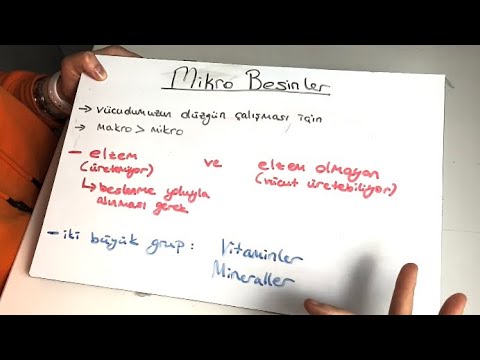 Mikro Besinler
→ vücudumuzun düzgün çalışması için
→ Makro > mikro
- elzem ve elzem olmayan
(üretemiyor) (vücut üretebiliyor)
↳ beslenme yoluyla
alınması gerek
- iki büyük grup: Vitaminler
Mineraller